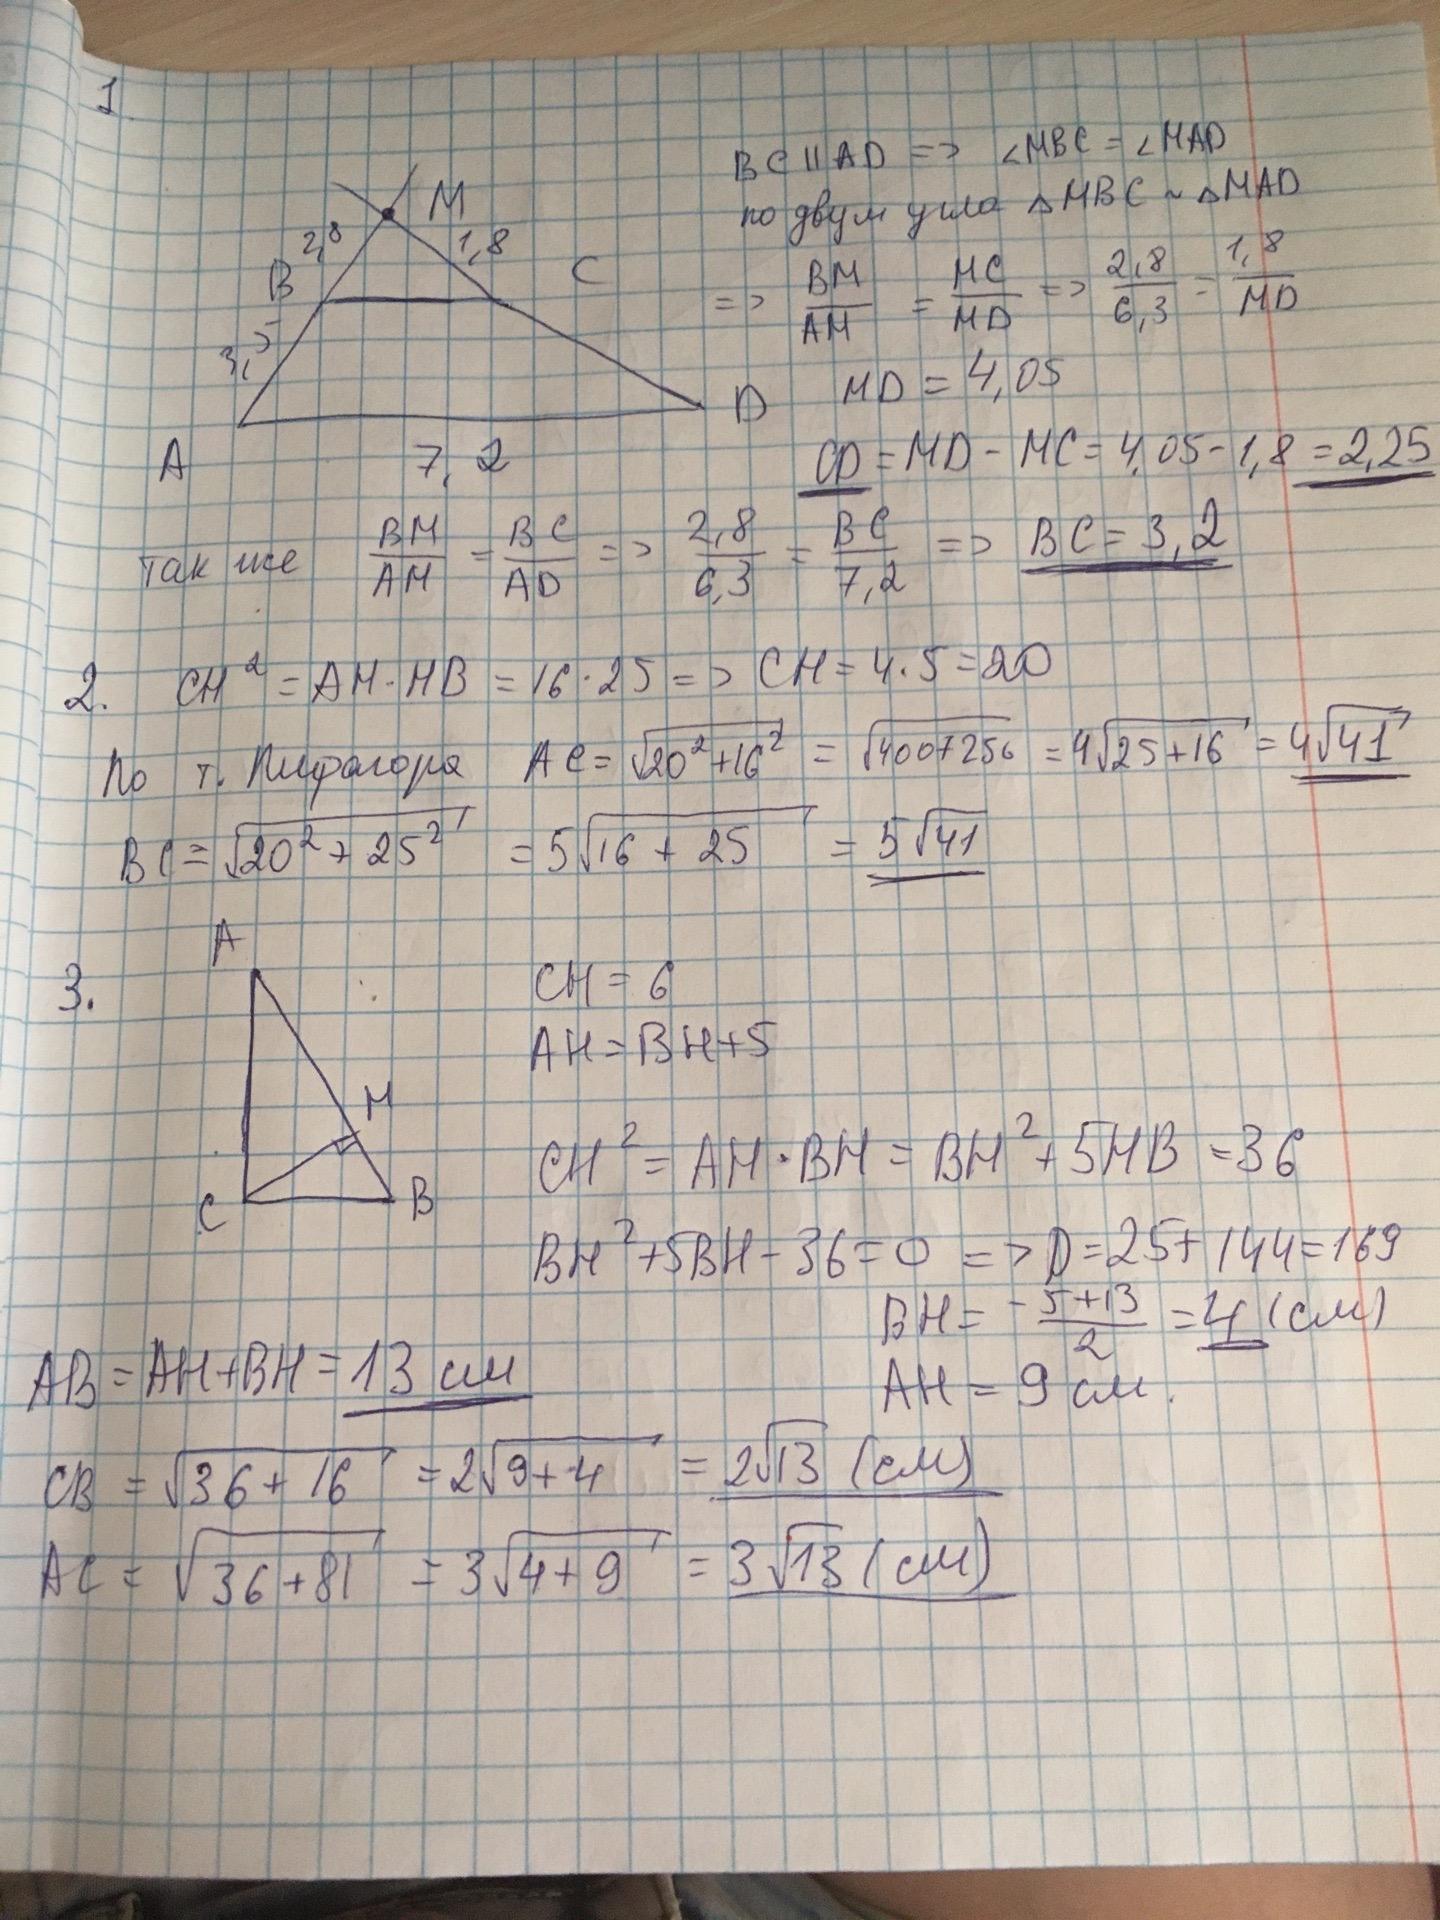 1
BC || AD => ∠MBC = ∠MAD
по двум угла △MBC ~ △MAD
M
2,8
1,8
B
C
3,5
A
7,2
D
=> BM/AM = MC/MD => 2,8/6,3 = 1,8/MD
MD = 4,05
CD = MD - MC = 4,05 - 1,8 = 2,25
так же BM/AM = BC/AD => 2,8/6,3 = BC/7,2 => BC = 3,2
2. CH² = AH · HB = 16 · 25 => CH = 4 · 5 = 20
По т. Пифагора AC = √(20² + 16²) = √(400 + 256) = 4√(25 + 16) = 4√41
BC = √(20² + 25²) = 5√(16 + 25) = 5√41
3.
A
H
C
B
CH = 6
AH = BH + 5
CH² = AH · BH = BH² + 5HB = 36
BH² + 5BH - 36 = 0 => D = 25 + 144 = 169
BH = (-5 + 13)/2 = 4 (см)
AH = 9 см.
AB = AH + BH = 13 см
CB = √(36 + 16) = 2√(9 + 4) = 2√13 (см)
AC = √(36 + 81) = 3√(4 + 9) = 3√13 (см)